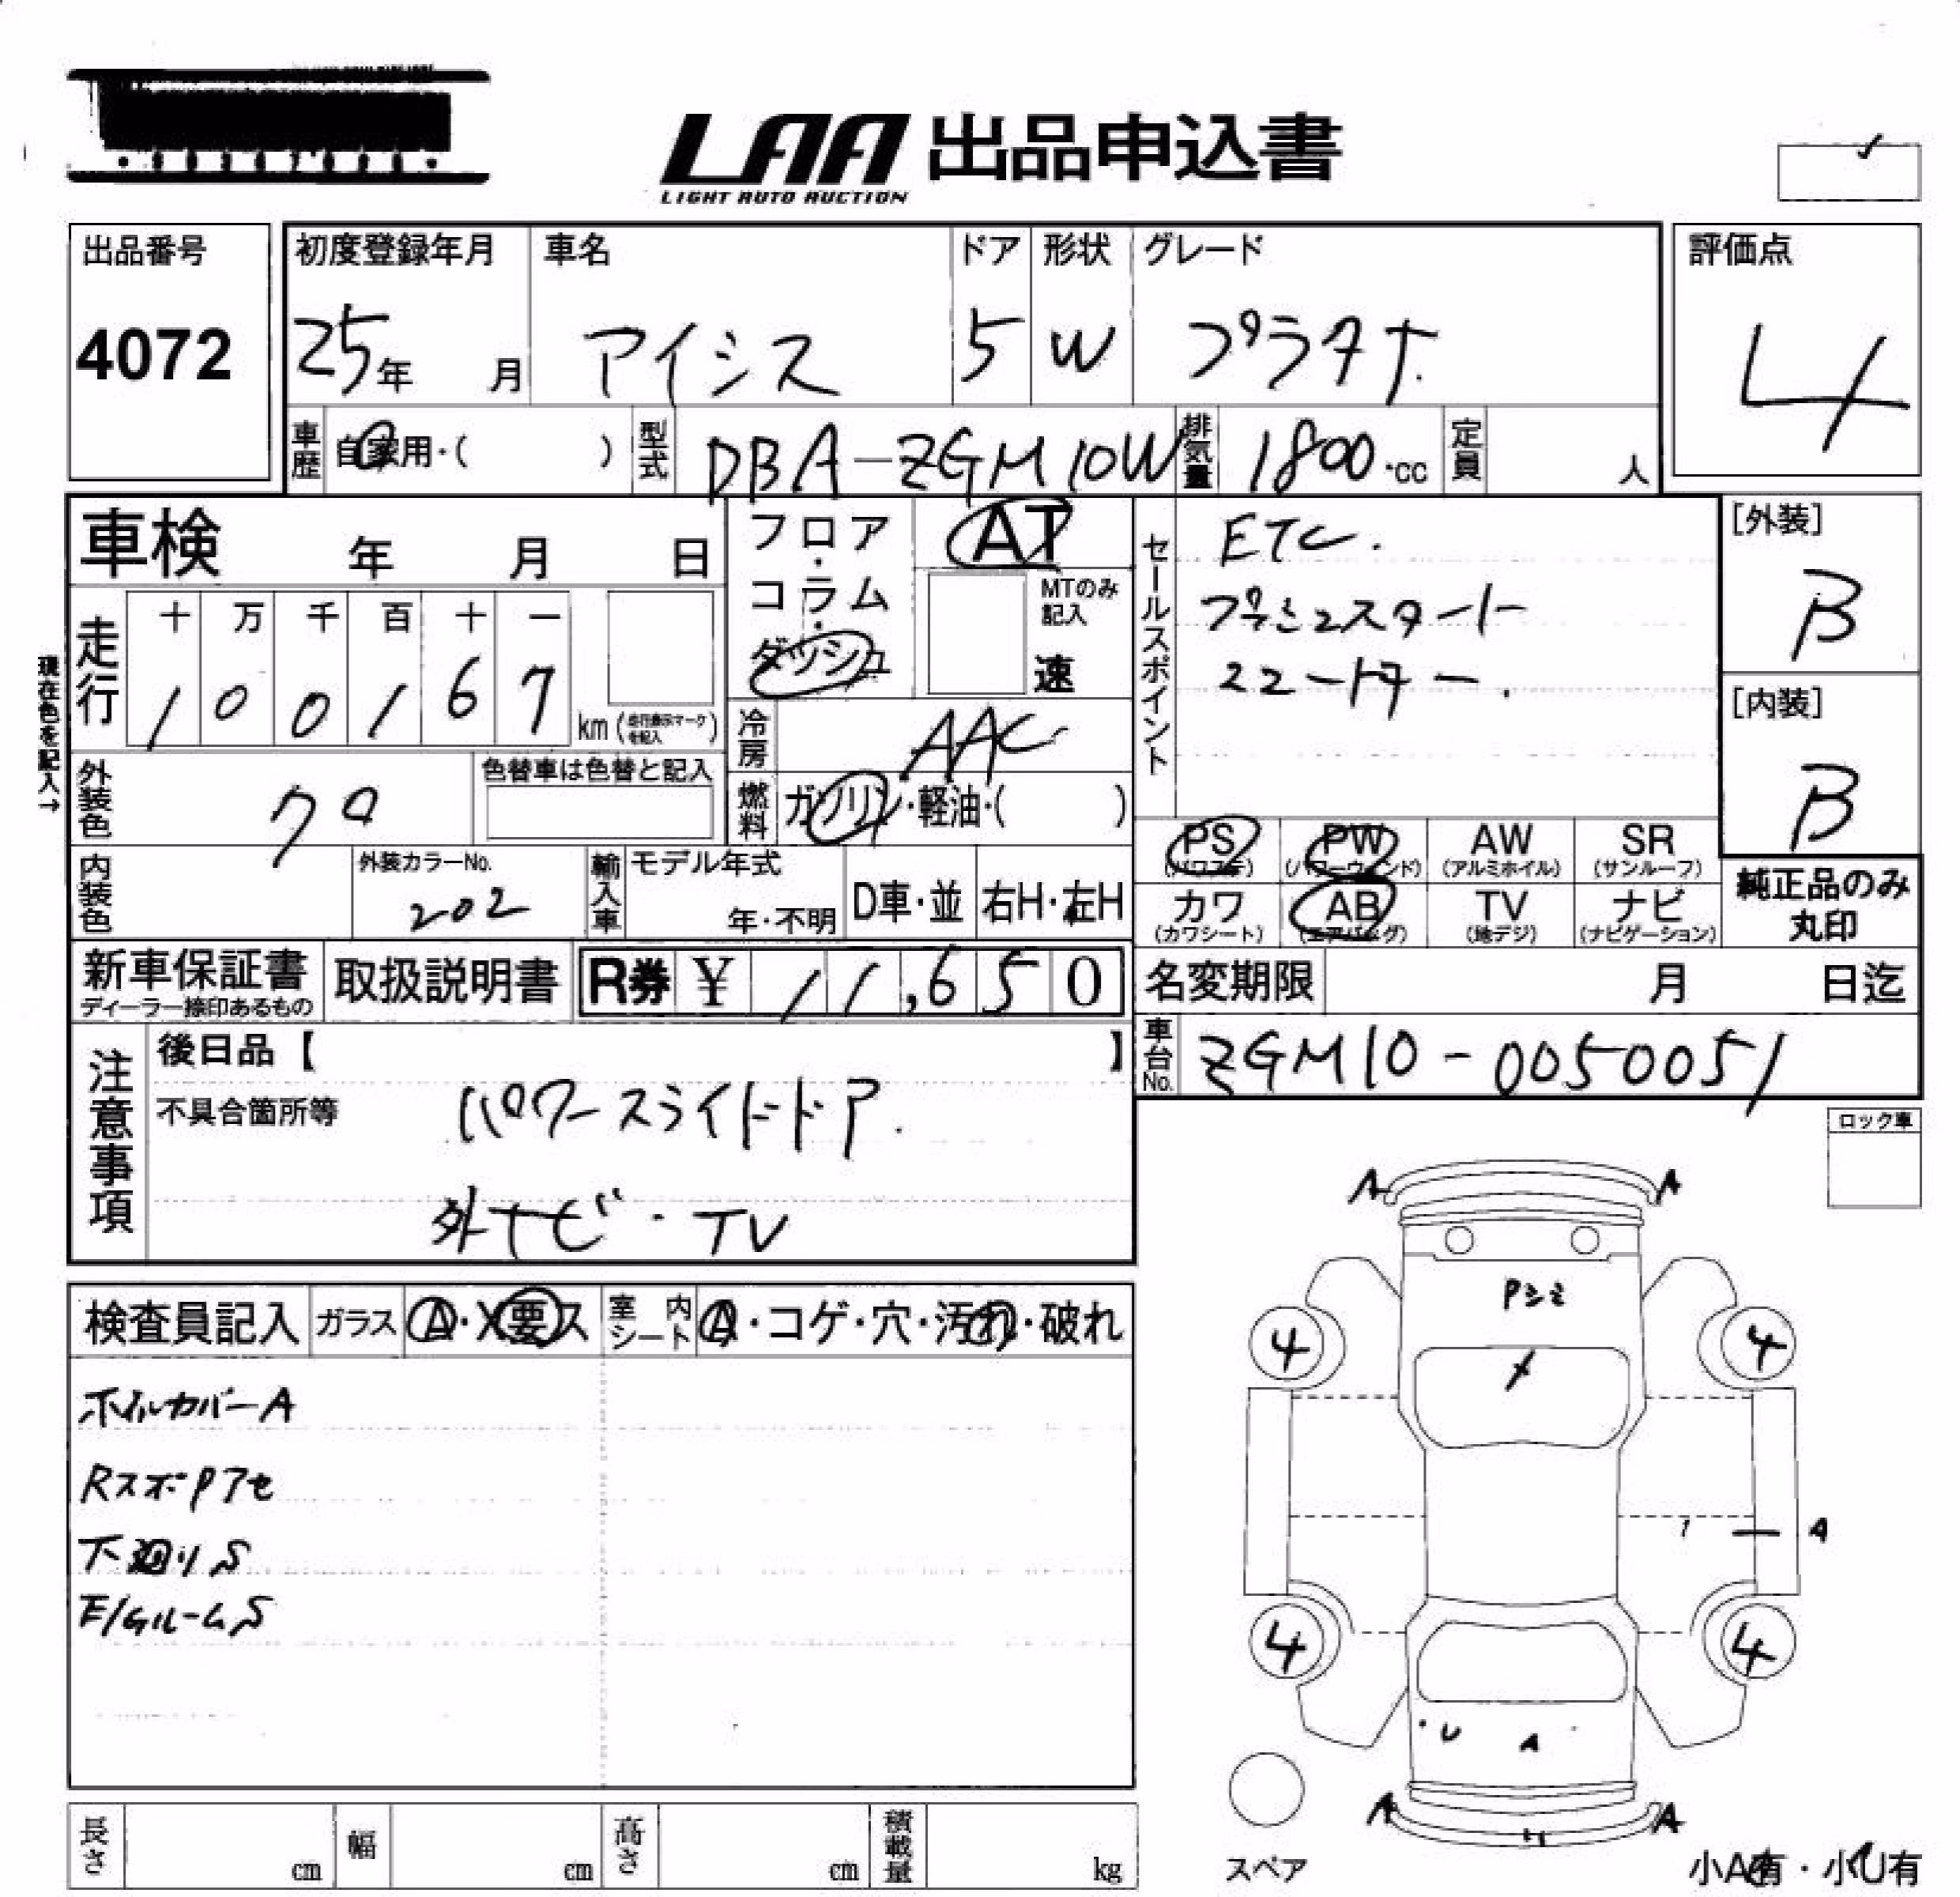 LAA 出品申込書
LIGHT AUTO AUCTION
出品番号
4072
初度登録年月
25年 月
車名
アイシス
ドア
5
形状
W
グレード
プラタナ
評価点
4
車歴 自家用・( )
型式 DBA-ZGM10W
排気量 1800・cc
定員 人
車検 年 月 日
フロア・コラム・ダッシュ
AT
MTのみ記入
速
セールスポイント
ETC.
プッシュスタート
スマートキー.
[外装]
B
[内装]
B
現在色を記入→
走行 十 万 千 百 十 一
1 0 0 1 6 7 km (走行表示マークを記入)
冷房 AAC
燃料 ガソリン・軽油・( )
外装色 クロ
色替車は色替と記入
内装色
外装カラーNo.
202
輸入車 モデル年式
年・不明
D車・並 右H・左H
PS (パワステ)
PW (パワーウィンド)
AW (アルミホイル)
SR (サンルーフ)
カワ (カワシート)
AB (エアバッグ)
TV (地デジ)
ナビ (ナビゲーション)
純正品のみ
丸印
新車保証書
ディーラー捺印あるもの
取扱説明書
R券 ¥ 11,650
名変期限 月 日迄
車台No. ZGM10-0050051
注意事項
後日品【 】
不具合箇所等
パワースライドドア.
外ナビ・TV
ロック車
検査員記入
ガラス A・X要ス
室内シート A・コゲ・穴・汚れ・破れ
ホイルカバーA
RスポPアセ
下廻りS
E/GルームS
A A
Pシミ
4 4
X
A
4 4
U A
A A
スペア
小A有・小U有
長さ cm
幅 cm
高さ cm
積載量 kg